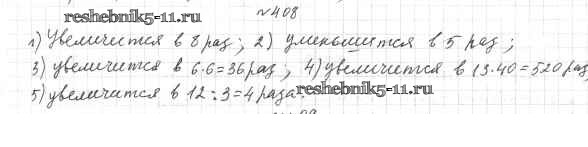 №408
reshebnik5-11.ru
1) Увеличится в 8 раз; 2) уменьшится в 5 раз;
3) увеличится в 6·6=36 раз; 4) увеличится в 13·40=520 раз
5) увеличится в 12:3=4 раза.
reshebnik5-11.ru